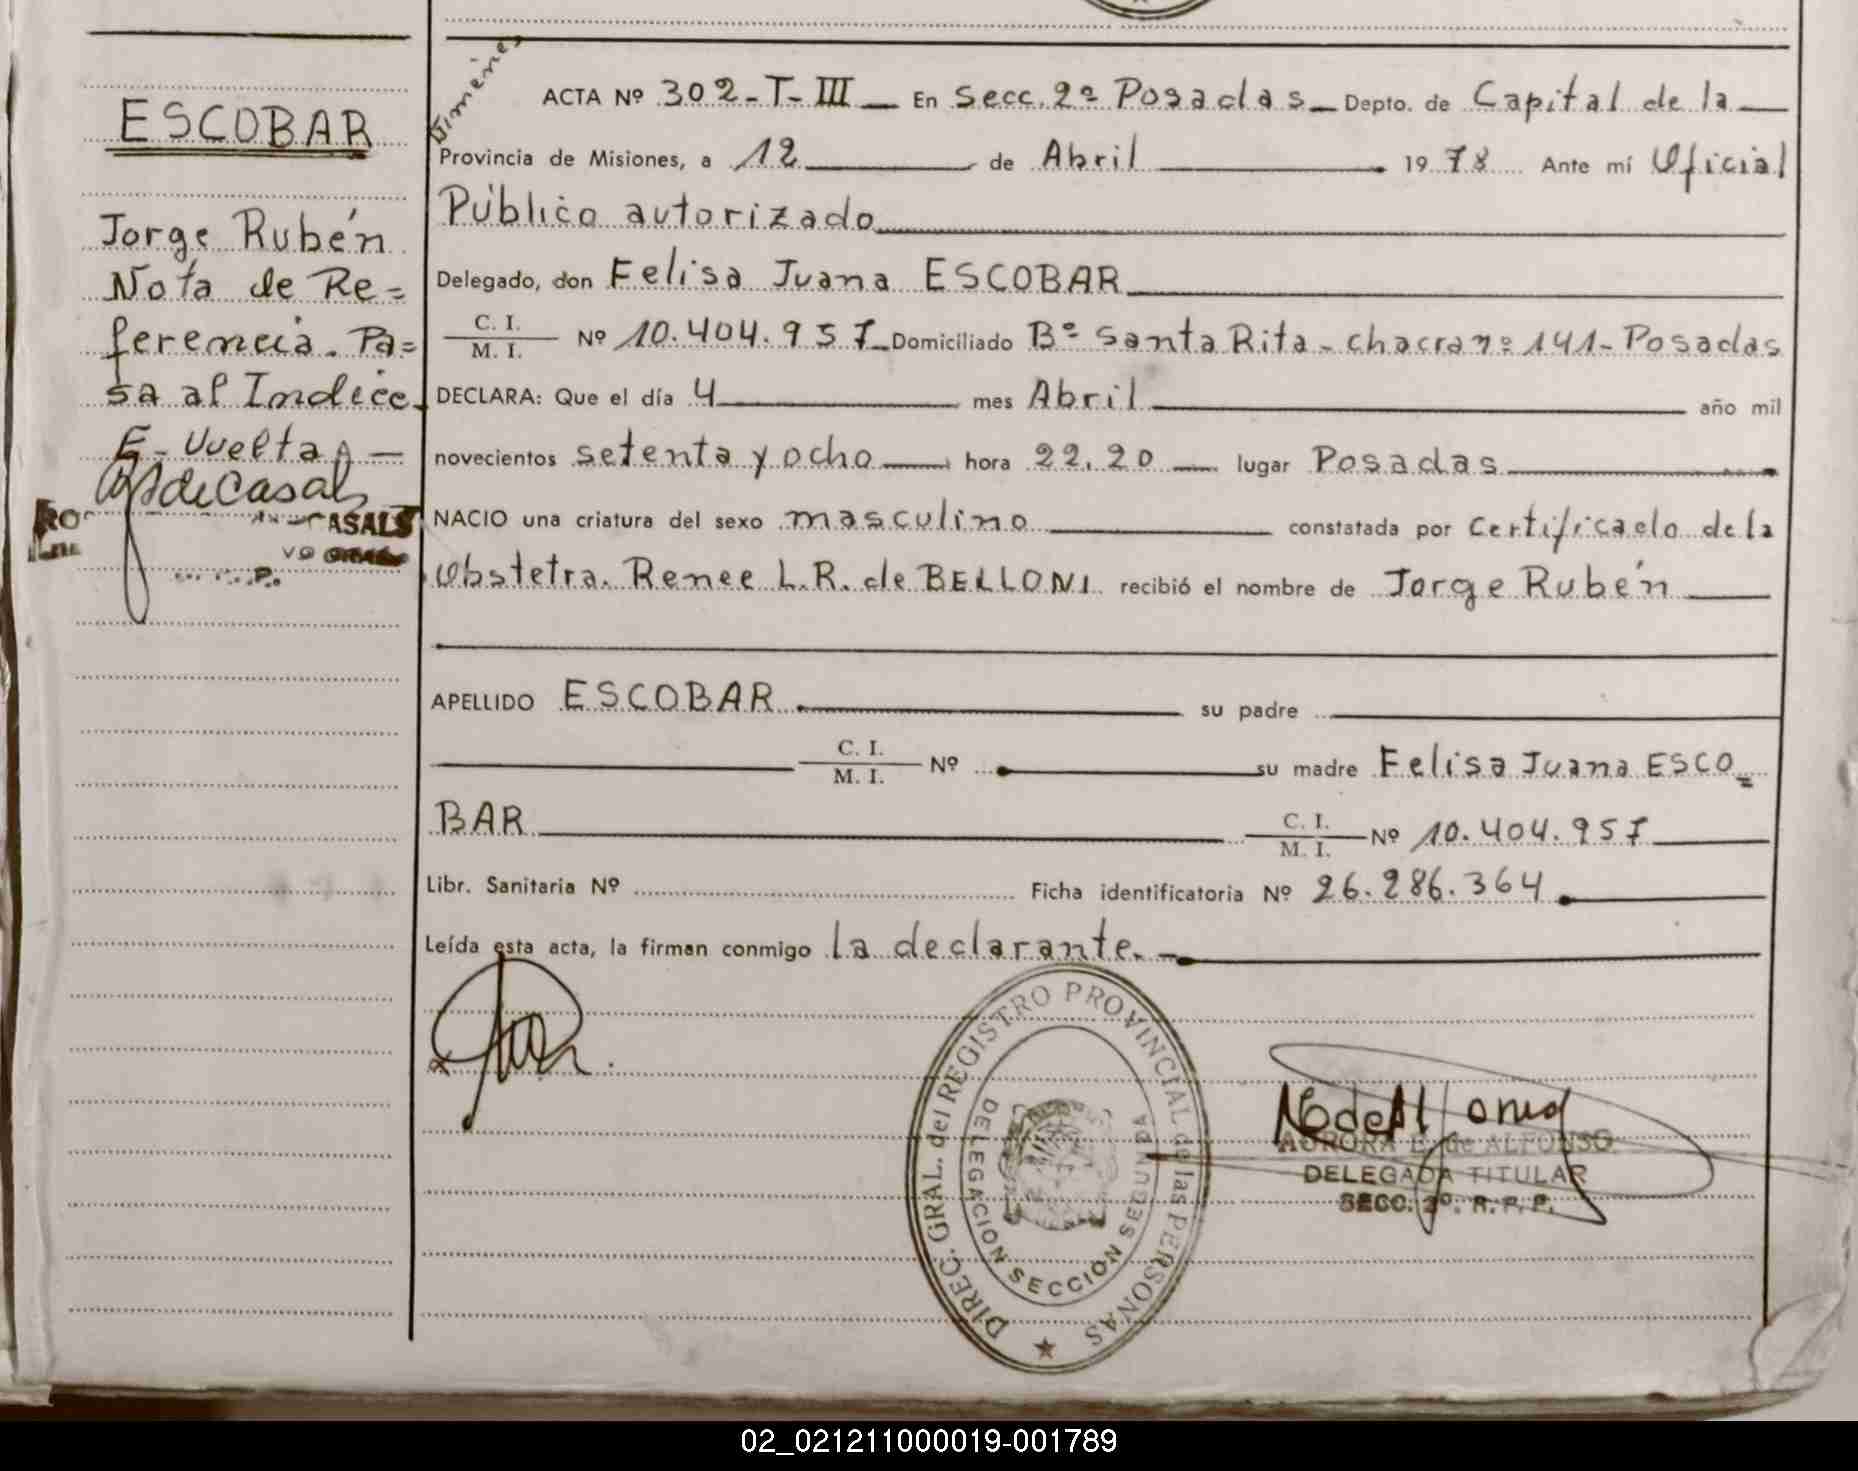 ESCOBAR
Jorge Rubén
Nota de Re=
ferencia. Pa=
sa al Indice
F- Vuelta
deCasals
CASALS
ACTA Nº 302-T-III En Secc. 2ª Posadas Depto. de Capital de la
Provincia de Misiones, a 12 de Abril 1978 Ante mí Oficial
Público autorizado
Delegado, don Felisa Juana ESCOBAR
C. I.
M. I. Nº 10.404.957 Domiciliado Bº Santa Rita - chacra nº 141 - Posadas
DECLARA: Que el día 4 mes Abril año mil
novecientos setenta y ocho hora 22,20 lugar Posadas
NACIO una criatura del sexo masculino constatada por Certificado de la
Obstetra. Renee L.R. de BELLONI recibió el nombre de Jorge Rubén
APELLIDO ESCOBAR su padre
C. I.
M. I. Nº su madre Felisa Juana ESCO=
BAR C. I.
M. I. Nº 10.404.957
Libr. Sanitaria Nº Ficha identificatoria Nº 26.286.364
Leída esta acta, la firman conmigo la declarante.
DIREC. GRAL. del REGISTRO PROVINCIAL de las PERSONAS
DELEGACION SECCION SEGUNDA
AURORA E. de ALFONSO
DELEGADA TITULAR
SECC. 2º. R. P. P.
02_021211000019-001789